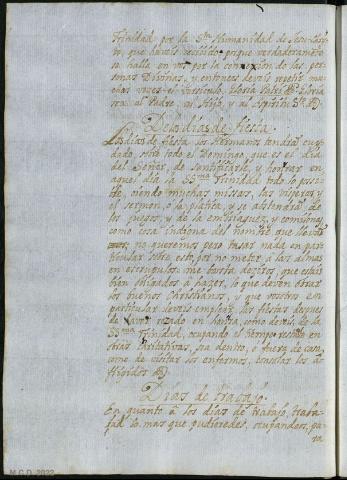 Trinidad, por la Sma Humanidad de Jesu-Chris-
to, que haveis recibido, porque verdaderamente
se halla en vos por la connexion de las per-
sonas Divinas, y entonces deveis repetir mu-
chas vezes el Versiculo, Gloria Patri &c. Gloria
sea al Padre, al Hijo, y al Spiritu Sto.
De los dias de fiesta.
Los dias de fiesta los Hermanos tendran cuy-
dado, sobre todo el Domingo, que es el dia
del Señor, de santificarle, y honrar en
aquel dia la SSma Trinidad todo lo possi-
ble, oiendo muchas missas, las visperas y
el sermon, o la platica, y se abstendran de
los juegos, y de la embriaguez, y comilonas
como cosa indigna del nombre que llevan
no queremos pero tasar nada en par-
ticular sobre esto, por no meter a las almas
en escrupulos: me basta deziros, que estais
bien obligados a hazer, lo que deven obrar
los buenos Christianos, y que vosotros en
particular deveis emplear las fiestas despues
de haver rezado en honra, como deveis, de la
SSma Trinidad, ocupando el tiempo restante en
obras Caritativas, sea dentro, o fuera de casa,
como de visitar los enfermos, consolar los a-
fligidos &c.
Dias de trabajo.
En quanto à los dias de trabajo, traba-
jad lo mas que pudieredes, ocupandoos, pa-
ra
M.C.D. 2022